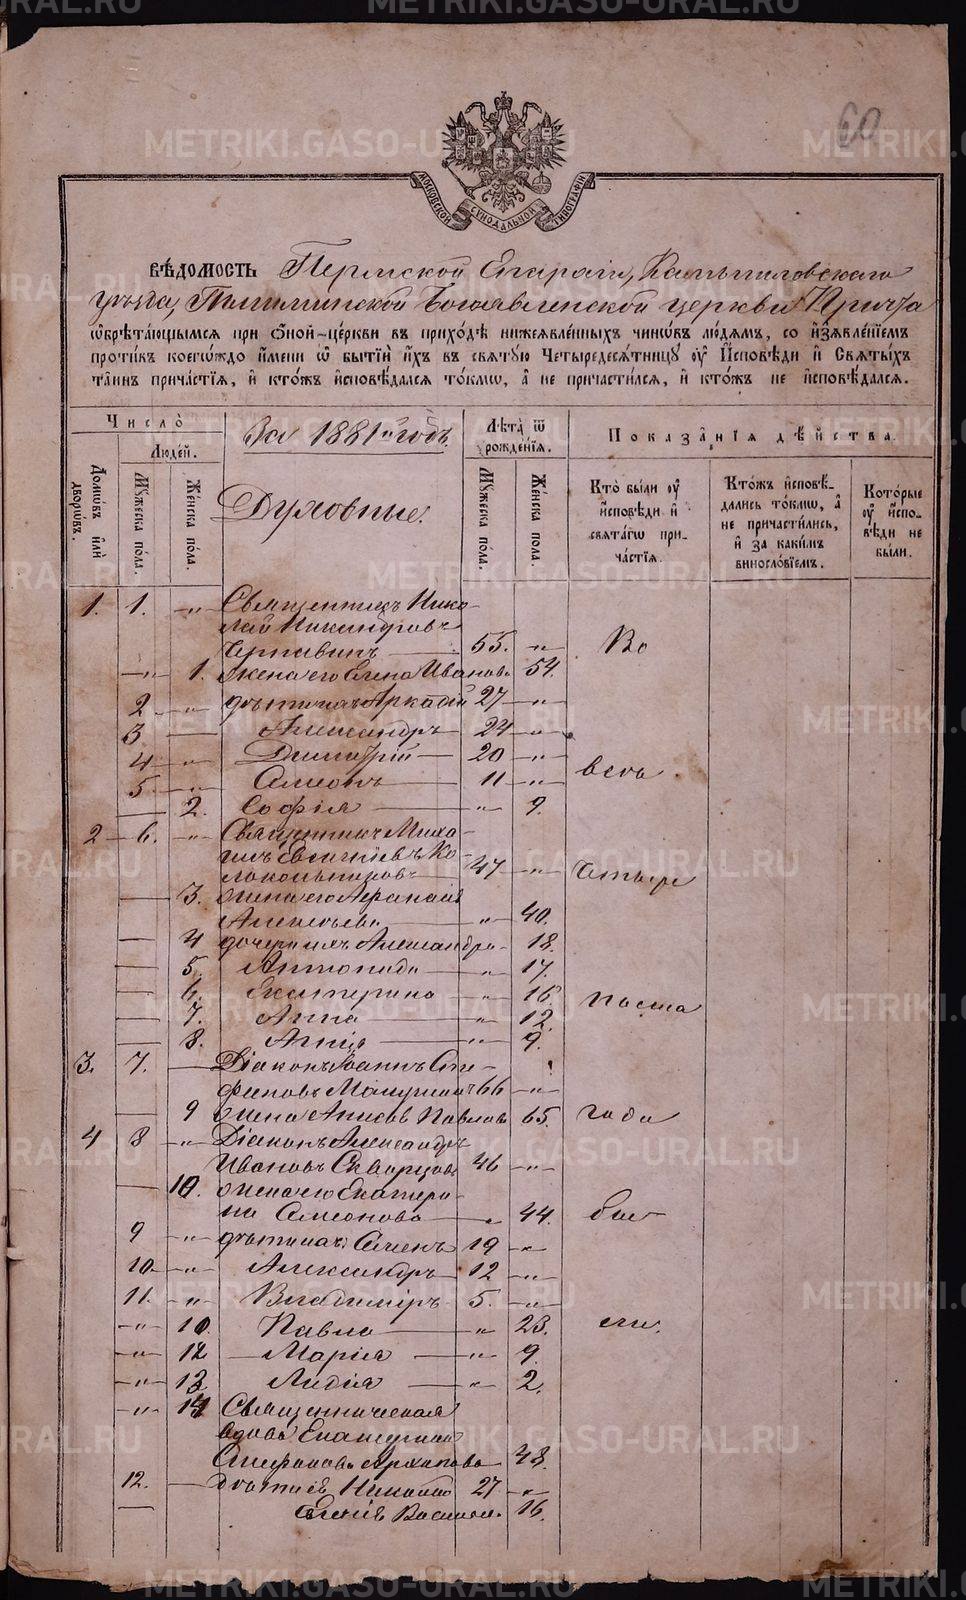 60
МОСКОВСКОЙ СѴНОДАЛЬНОЙ ТИПОГРАФІИ
ВѢ́ДОМОСТЬ Пермской Епархіи, Камышловскаго
уѣзда, Пышминской Богоявленской церкви Причта
ѡ҆брѣта́ющымсѧ при ѻ҆́ной-це́ркви въ прихо́дѣ нижеѧвле́нныхъ чинѡ́въ лю́демъ, со и҆з̾ѧвле́нїемъ
проти́въ коегѡ́ждо и҆́мени ѡ҆ бытїѝ и҆́хъ въ свѧту́ю Четыредесѧ́тницу ᲂу҆ И҆́сповѣди и҆ Свѧты́хъ
та́инъ прича́стїѧ, и҆ кто́жъ и҆сповѣ́далсѧ то́кмѡ, а҆ не причасти́лсѧ, и҆ кто́жъ не и҆сповѣ́далсѧ.
Число̀
За 1881й годъ
Лѣ́та ѿ рожде́нїѧ.
Показа́нїѧ дѣ́йства.
Люде́й.
Домѡ́въ и҆лѝ дворѡ́въ.
Му́жеска по́ла.
Же́нска по́ла.
Духовные.
Му́жеска по́ла.
Же́нска по́ла.
Кто̀ бы́ли ᲂу҆ и҆́сповѣди и҆ свѧта́гѡ прича́стїѧ.
Кто́жъ и҆сповѣ́дались то́кмѡ, а҆ не причасти́лись, и҆ за каки́мъ виносло́вїемъ.
Кото́рые ᲂу҆ и҆́сповѣди не бы́ли.
1. 1. „ Священникъ Нико-
лай Никандровъ
55. „ Во
„ 1. жена его Елена Иванова 54.
2 „ дѣти ихъ Аркадій 27 „
3 — Александръ 24 „
4 „ Димитрій 20 „
5 „ Симеонъ 11 „ весь
— 2. Софія „ 9.
2 6. „ Священникъ Миха-
илъ Евгеніевъ Ко-
локольниковъ 47 „ четыре
3. жена его
Алексѣева „ 40.
— 4 дочери ихъ Александра 18.
— 5. Антонида „ 17.
— 6. Екатерина „ 16 поста
— 7. Анна „ 12.
— 8. Агнія „ 9.
3. 7. — Діаконъ Іоаннъ Сте-
фановъ 66 „
9 жена Павлова 65. года
4 8 „ Діаконъ Александръ
Ивановъ Скворцовъ 46 „
— 10. жена его Екатери-
на Симеонова „ 44. бы-
9 „ дѣти ихъ: 19 „
10. „ Александръ 12 „
11. „ Владиміръ 5. „
„ 10. Павла „ 23. ли.
„ 12 Марія „ 9.
„ 13 Лидія „ 2.
„ 14 Священническая
вдова Екатерина
Стефанова 48.
12. — дѣти ея Николай 27 „
— 16.
METRIKI.GASO-URAL.RU